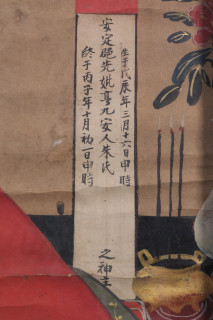 生于戊辰年三月十六日申時
安定郡先妣喜九安人朱氏
終于丙子年十月初一日申時
之神主